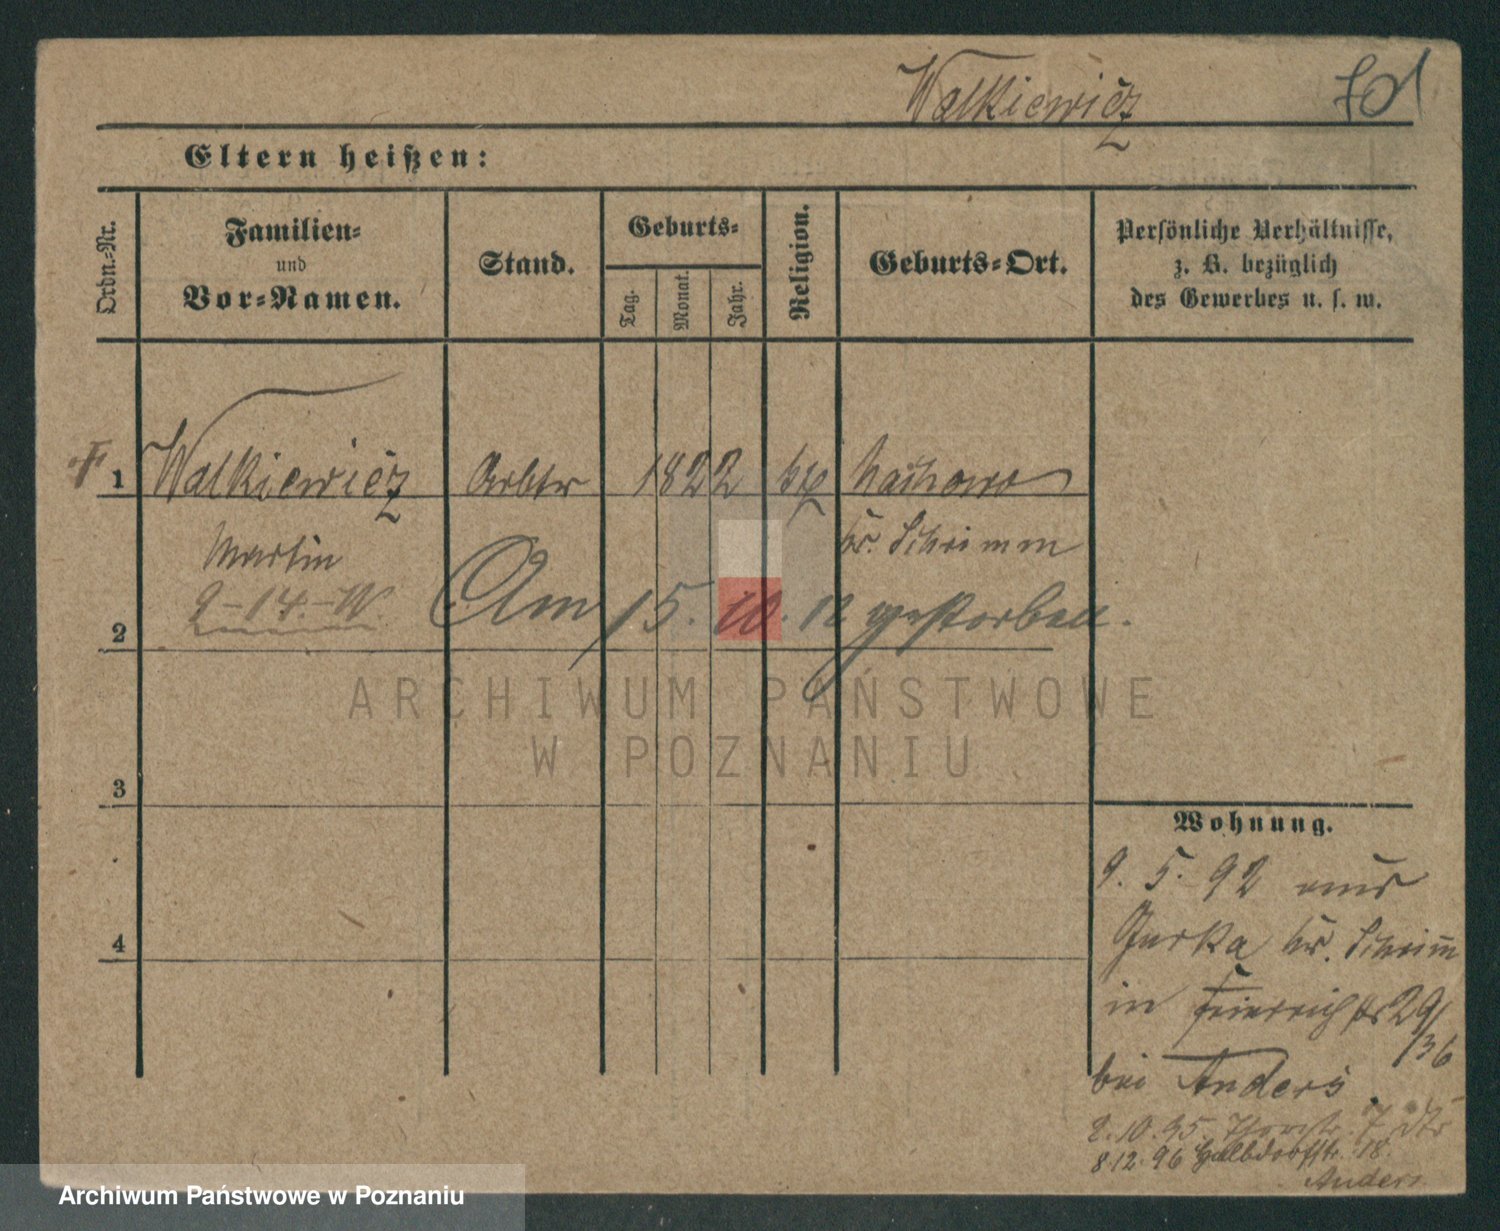 Walkiewicz
Eltern heißen:
Ordn.-Nr.
Familien-
und
Vor-Namen.
Stand.
Geburts-
Tag.
Monat.
Jahr.
Religion.
Geburts-Ort.
Persönliche Verhältnisse,
z. B. bezüglich
des Gewerbes u. s. w.
1 Walkiewicz Arbtr 1822 kth
Martin kr. Schrimm
Am 15. 10. 12 gestorben.
2
ARCHIWUM PAŃSTWOWE
W POZNANIU
3
4
Wohnung.
9. 5. 92 aus
Gurka kr. Schrim̄
in 29/
36
bei Anders
2. 10. 95. 7
8.12.96 Halbdorfstr. 18.
Anders
Archiwum Państwowe w Poznaniu